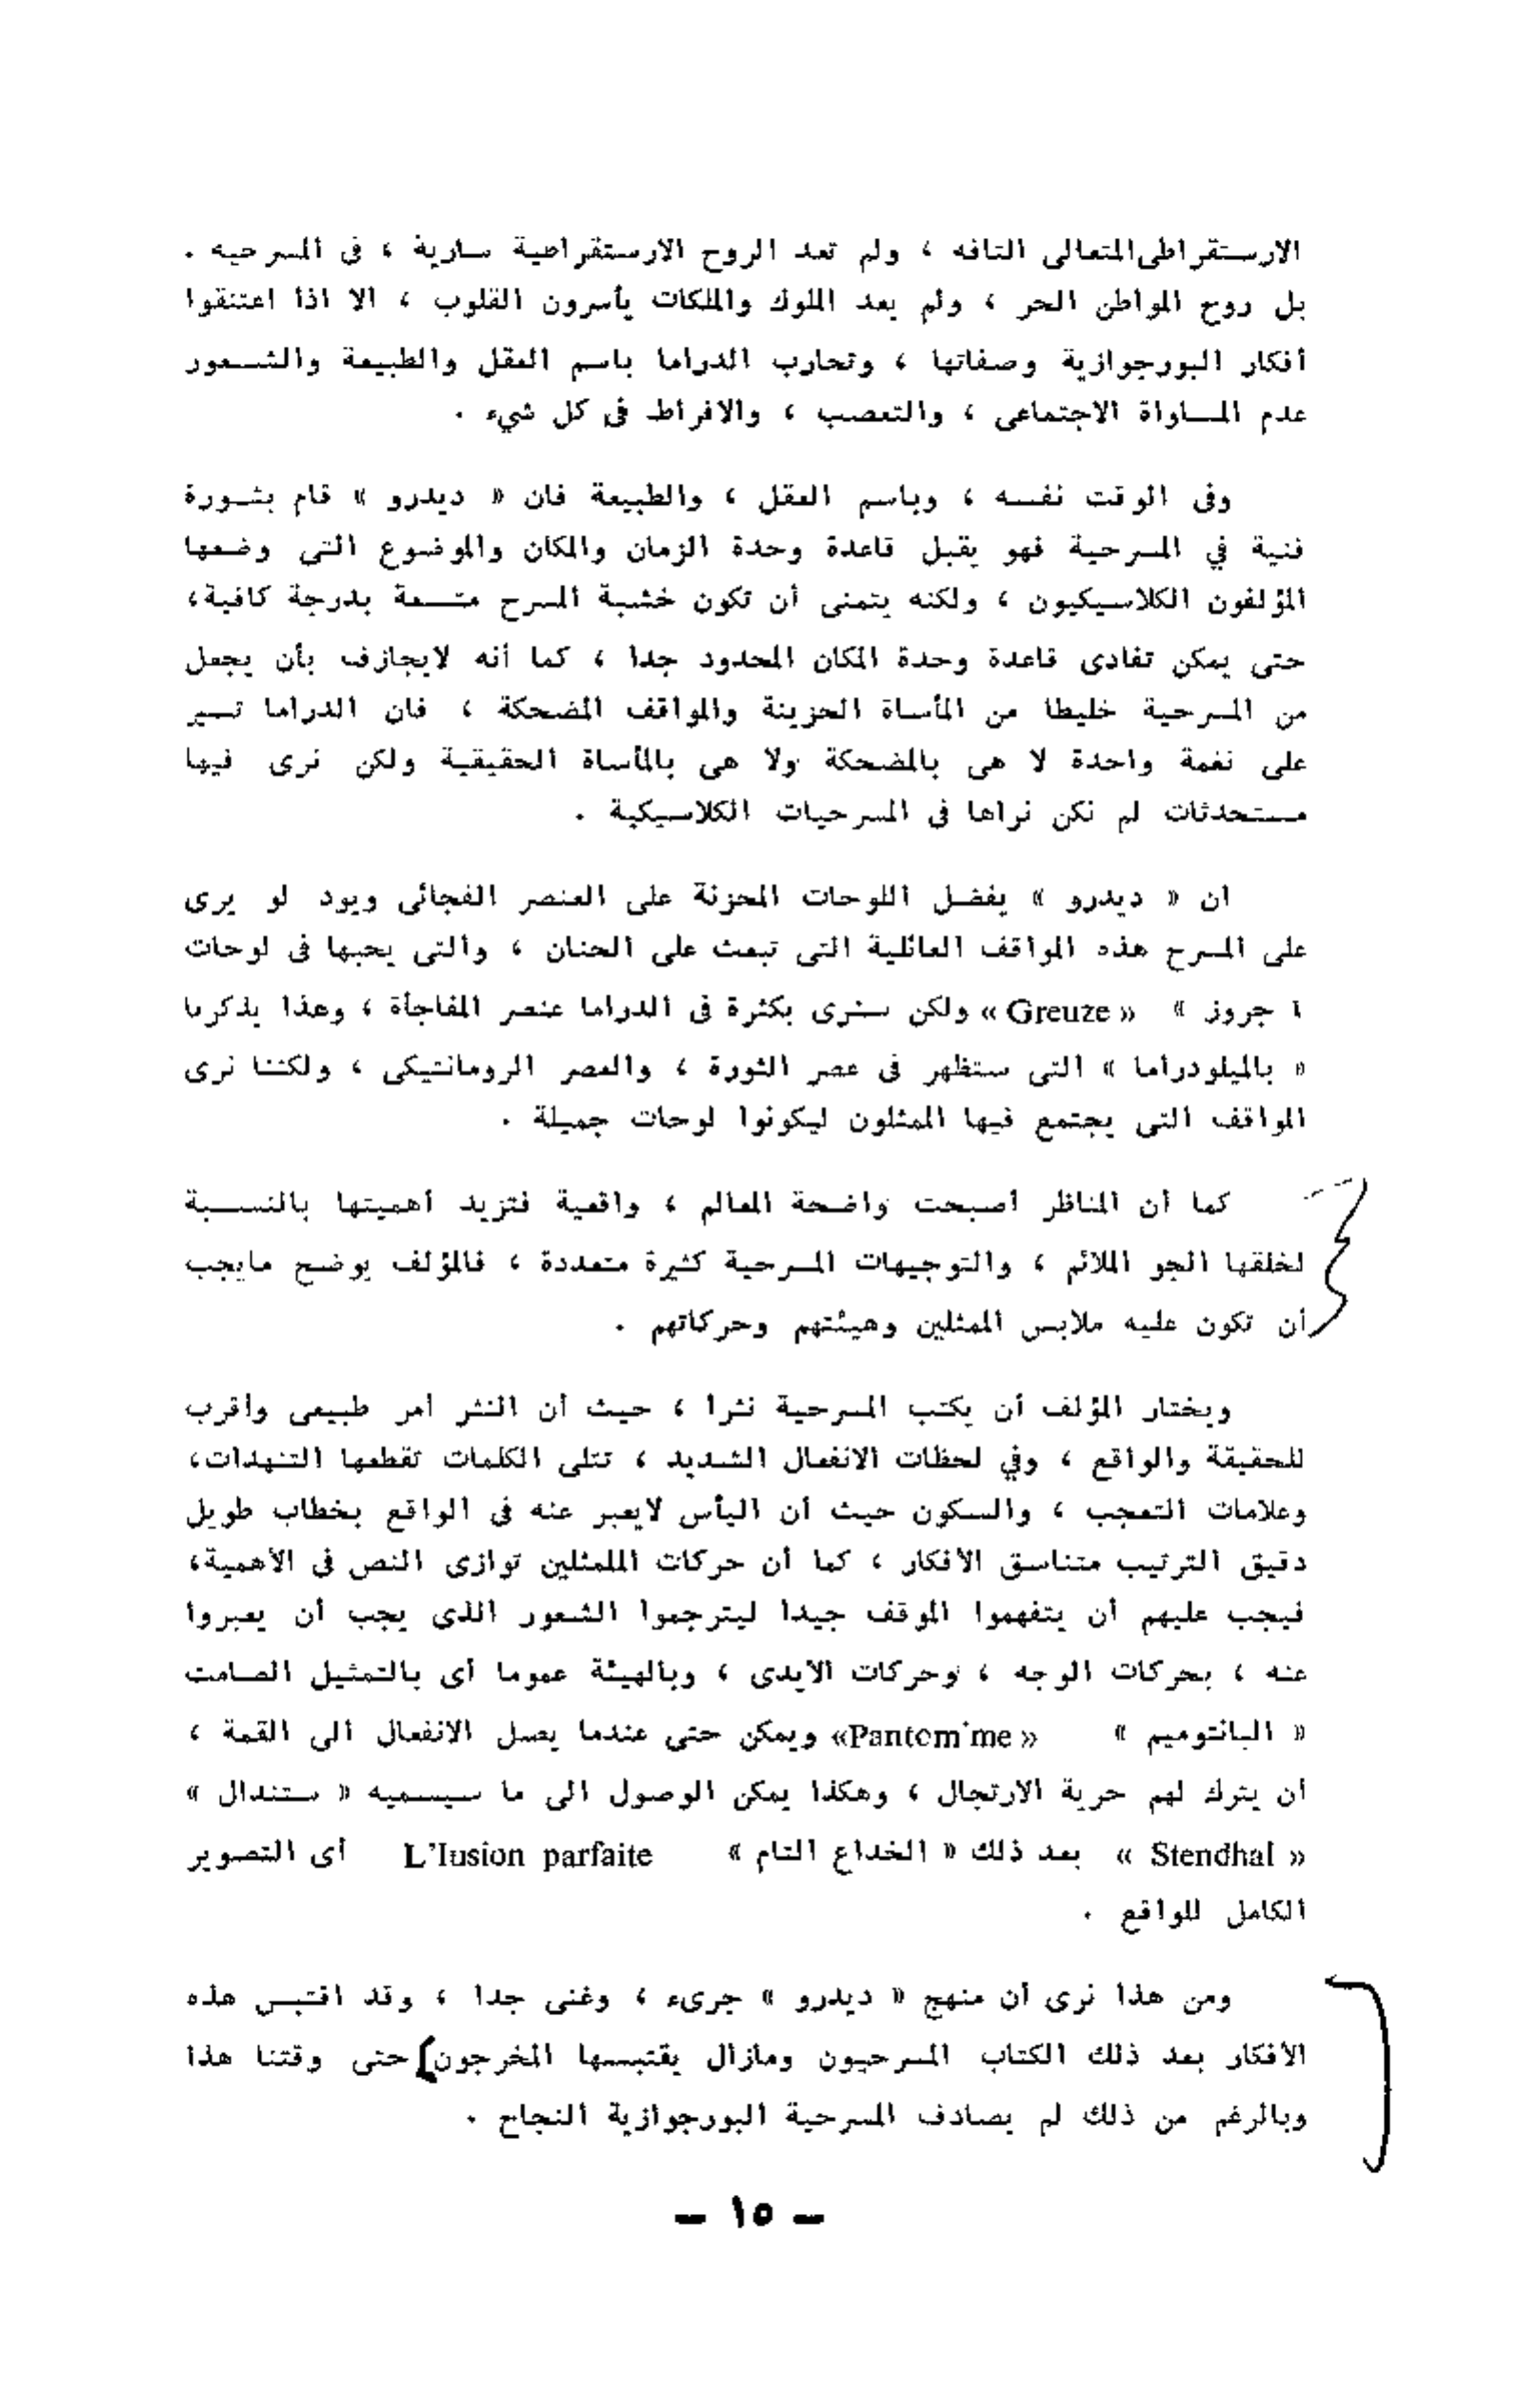 الارستقراطى المتعالى التافه ، ولم تعد الروح الارستقراطية سارية ، فى المسرحيه .
بل روح المواطن الحر ، ولم يعد الملوك والملكات يأسرون القلوب ، الا اذا اعتنقوا
أفكار البورجوازية وصفاتها ، وتحارب الدراما باسم العقل والطبيعة والشعور
عدم المساواة الاجتماعى ، والتعصب ، والافراط فى كل شيء .
وفى الوقت نفسه ، وباسم العقل ، والطبيعة فان « ديدرو » قام بثورة
فنية في المسرحية فهو يقبل قاعدة وحدة الزمان والمكان والموضوع التى وضعها
المؤلفون الكلاسيكيون ، ولكنه يتمنى أن تكون خشبة المسرح متسعة بدرجة كافية،
حتى يمكن تفادى قاعدة وحدة المكان المحدود جدا ، كما أنه لايجازف بأن يجعل
من المسرحية خليطا من المأساة الحزينة والمواقف المضحكة ، فان الدراما تسير
على نغمة واحدة لا هى بالمضحكة ولا هى بالمأساة الحقيقية ولكن نرى فيها
مستحدثات لم نكن نراها فى المسرحيات الكلاسيكية .
ان « ديدرو » يفضل اللوحات المحزنة على العنصر الفجائى ويود لو يرى
على المسرح هذه المواقف العائلية التى تبعث على الحنان ، والتى يحبها فى لوحات
« جروز » « Greuze » ولكن سنرى بكثرة فى الدراما عنصر المفاجأة ، وهذا يذكرنا
« بالميلودراما » التى ستظهر فى عصر الثورة ، والعصر الرومانتيكى ، ولكننا نرى
المواقف التى يجتمع فيها الممثلون ليكونوا لوحات جميلة .
كما أن المناظر أصبحت واضحة المعالم ، واقعية فتزيد أهميتها بالنسبة
لخلقها الجو الملائم ، والتوجيهات المسرحية كثيرة متعددة ، فالمؤلف يوضح مايجب
أن تكون عليه ملابس الممثلين وهيئتهم وحركاتهم .
ويختار المؤلف أن يكتب المسرحية نثرا ، حيث أن النثر أمر طبيعى وأقرب
للحقيقة والواقع ، وفي لحظات الانفعال الشديد ، تتلى الكلمات تقطعها التنهدات،
وعلامات التعجب ، والسكون حيث أن اليأس لايعبر عنه فى الواقع بخطاب طويل
دقيق الترتيب متناسق الأفكار ، كما أن حركات الللمثلين توازى النص فى الأهمية،
فيجب عليهم أن يتفهموا الموقف جيدا ليترجموا الشعور الذى يجب أن يعبروا
عنه ، بحركات الوجه ، وحركات الأيدى ، وبالهيئة عموما أى بالتمثيل الصامت
« البانتوميم » «Pantom'me» ويمكن حتى عندما يصل الانفعال الى القمة ،
أن يترك لهم حرية الارتجال ، وهكذا يمكن الوصول الى ما سيسميه « ستندال »
« Stendhal » بعد ذلك « الخداع التام » L'Iusion parfaite أى التصوير
الكامل للواقع .
ومن هذا نرى أن منهج « ديدرو » جرىء ، وغنى جدا ، وقد اقتبس هذه
الأفكار بعد ذلك الكتاب المسرحيون ومازال يقتبسها المخرجون حتى وقتنا هذا
وبالرغم من ذلك لم يصادف المسرحية البورجوازية النجاح .
— ١٥ —